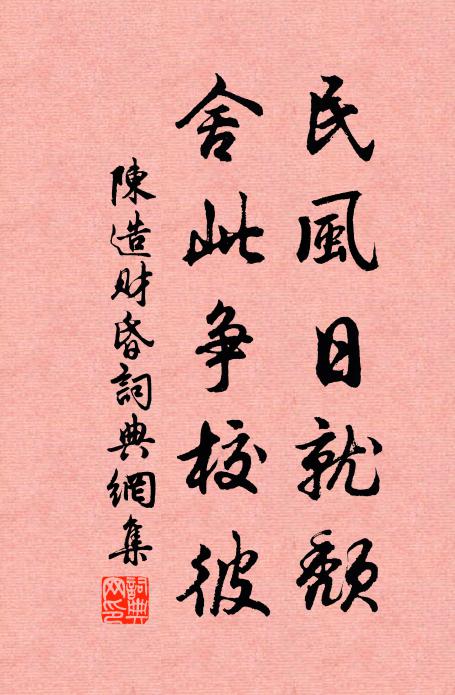 民風日就頽
舍此争校彼
陳造財昏詞典網集
詞典網印